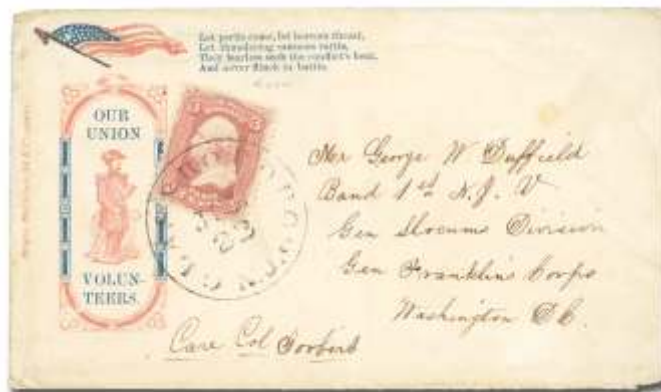 Let perils come, let horrors threat,
Let thundering cannons rattle,
They fearless seek the conflict's heat,
And never flinch in battle.
OUR
UNION
VOLUN-
TEERS.
Mr George W Duffield
Band 1st N. J. V
Gen Slocums Division
Gen Franklins Corps
Washington D C.
Care Col Torbert